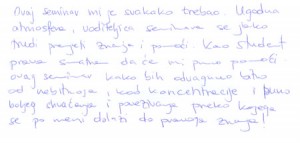 Ovaj seminar mi je svakako trebao. Ugodna
atmosfera, voditeljica seminara se jako
trudi prenijeti znanje i pomoći. Kao student
prava smatram da će mi puno pomoći
ovaj seminar kako bih odvagnuo bitno
od nebitnoga, kod koncentracije i puno
boljeg shvaćanja i povezivanja preko kojega
se po meni dolazi do punoga znanja!